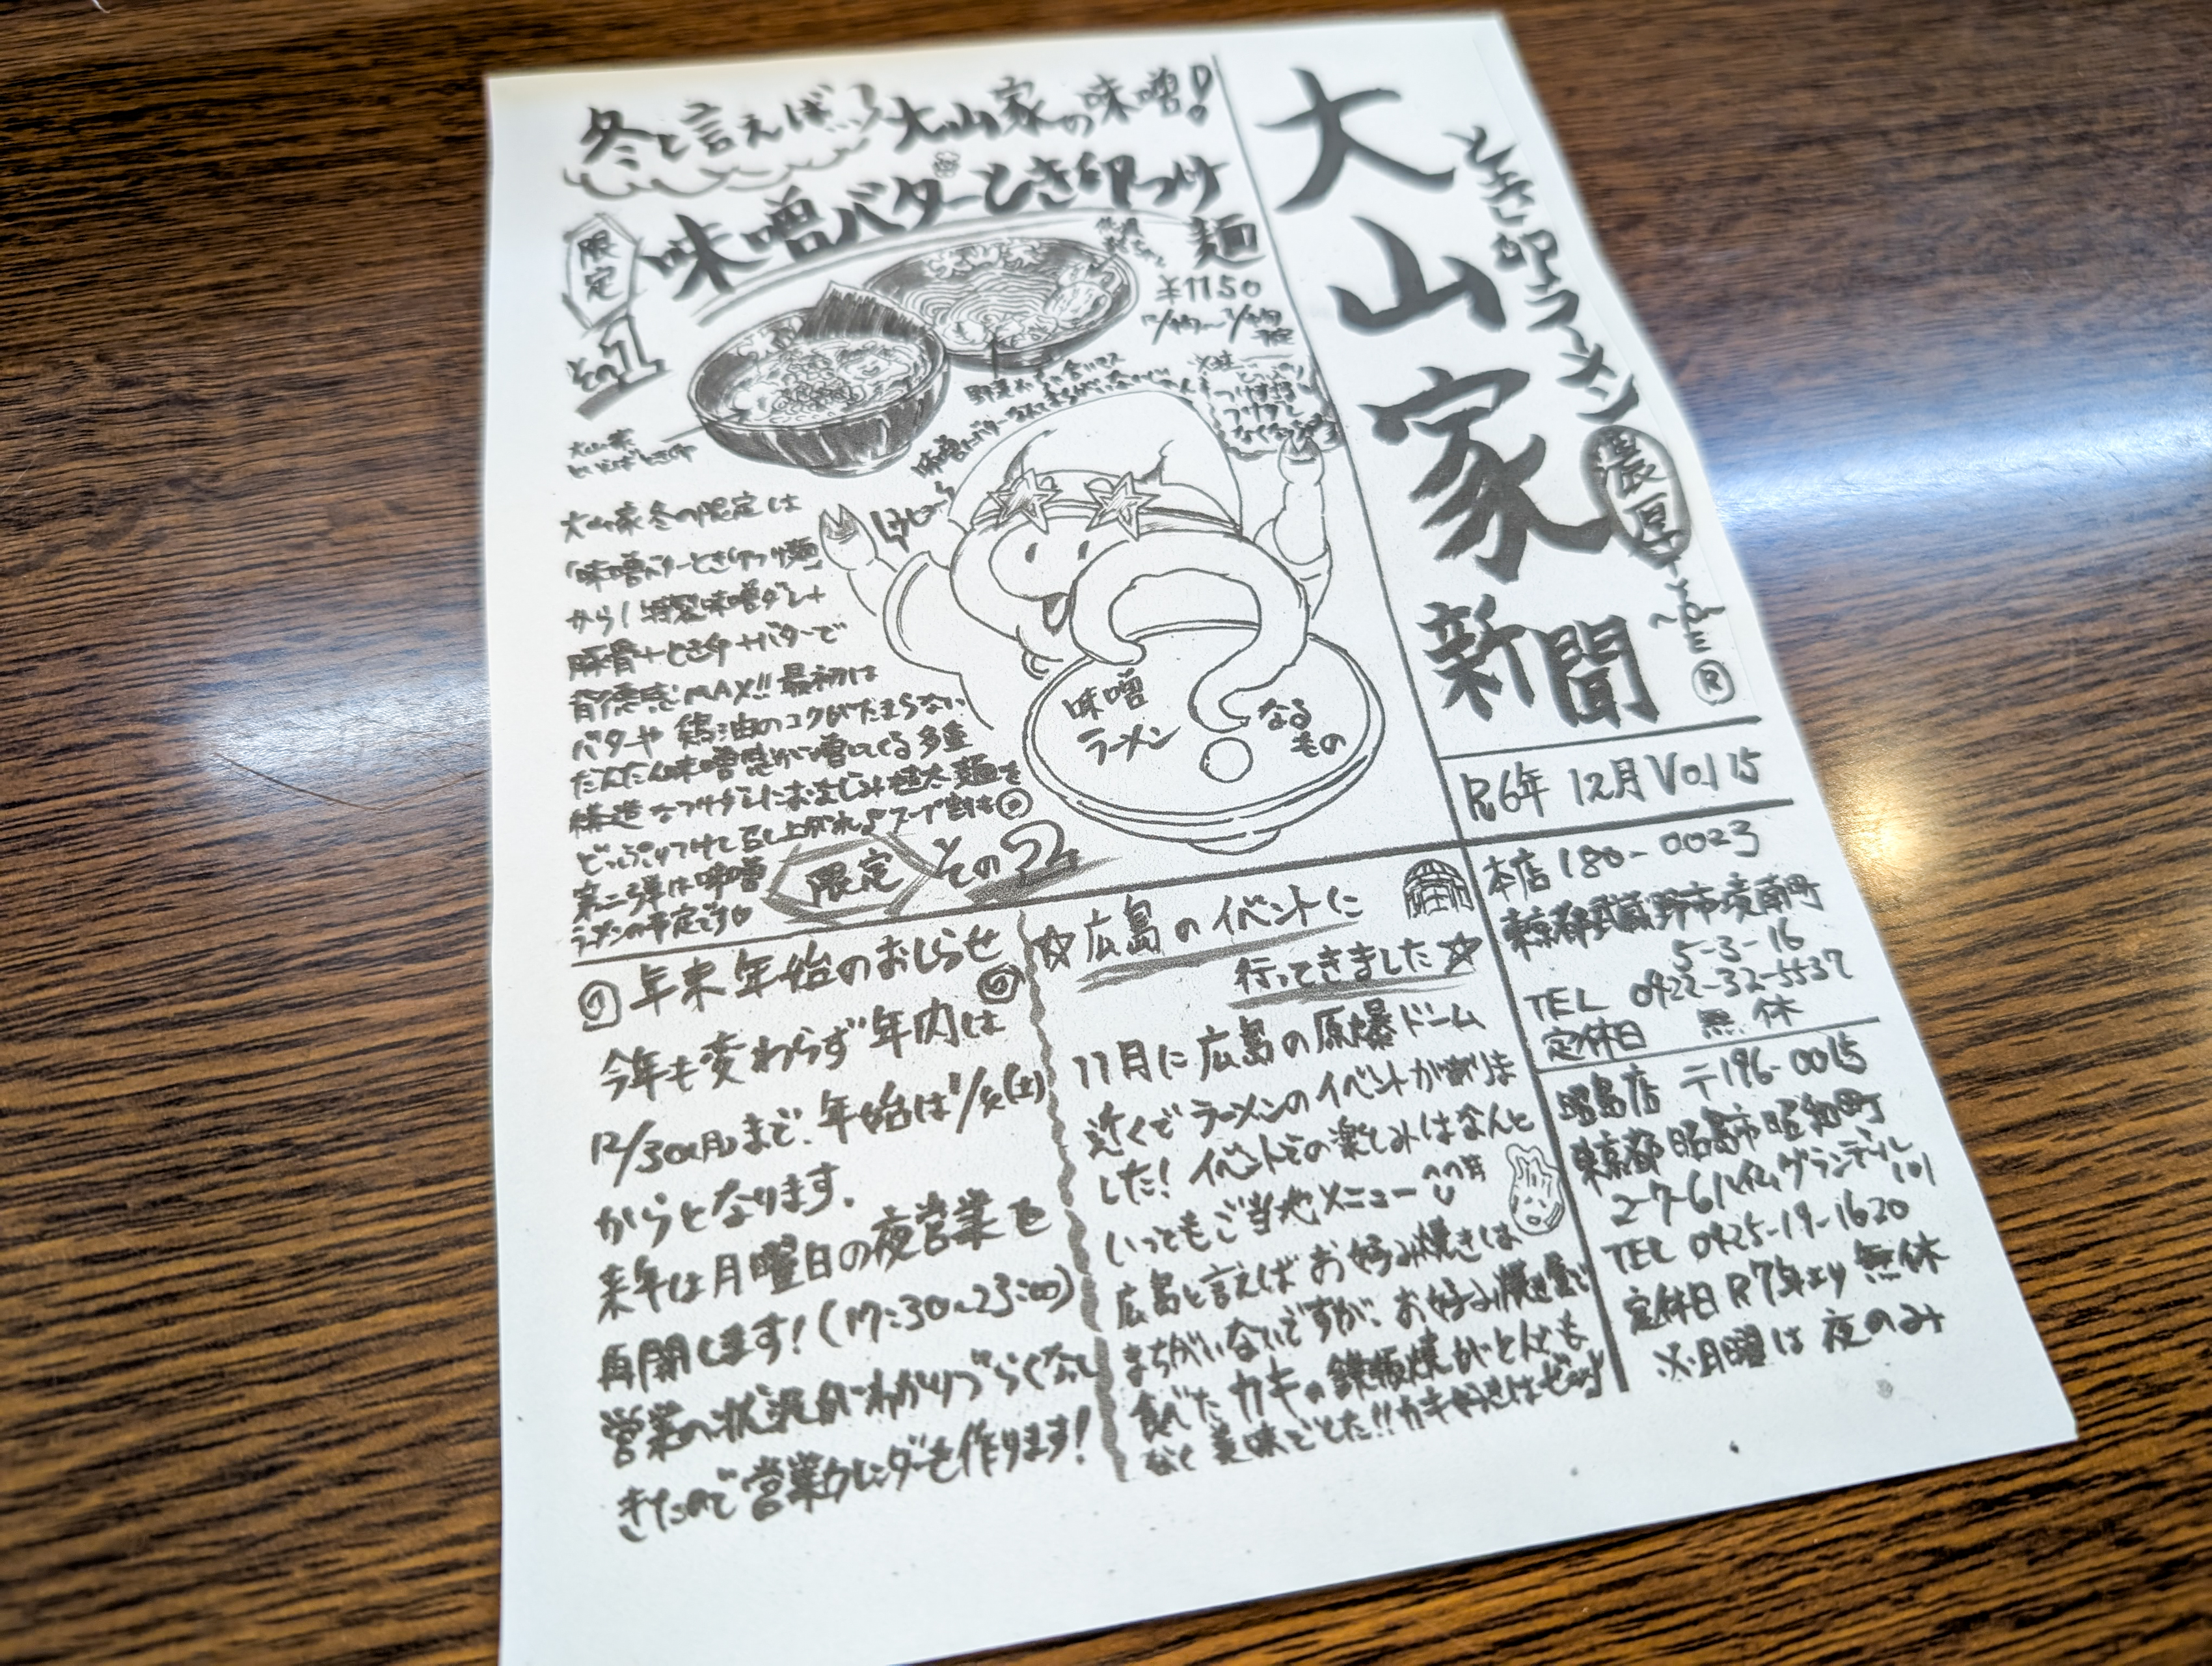 大山家新聞
とき卵ラーメン
濃厚
®
R6年 12月 Vol 15
本店 180-0023
東京都武蔵野市境南町
5-3-16
TEL 0422-32-5537
定休日 無休
昭島店 〒196-0015
東京都昭島市昭和町
2-7-6 ハイムグランデール
101
TEL 0425-19-1620
定休日 R7年より 無休
※月曜は夜のみ
冬と言えば…大山家の味噌!
限定
その1
味噌バターとき卵つけ
麺
¥1150
大山家
といえばとき卵
大山家冬の限定は
「味噌バターとき卵つけ麺」
から! 特製味噌ダレ+
豚骨+とき卵+バターで
背徳感MAX!! 最初は
バターや鶏油のコクがたまらない
だんだん味噌感が増してくる多重
構造なつけダレにおなじみ極太麺を
どっぷりつけて召し上がれ♪スープ割も
第二弾は味噌
ラーメンの予定です
限定 その2
味噌
ラーメン
?
なる
もの
年末年始のおしらせ
今年も変わらず年内は
12/30(月)まで、年始は
からとなります。
来年は月曜日の夜営業を
再開します!(17:30~23:00)
営業の状況がわかりづらくなって
きたので営業カレンダーを作ります!
☆広島のイベントに
行ってきました☆
11月に広島の原爆ドーム
近くでラーメンのイベントがありま
した! イベントでの楽しみはなんと
いってもご当地メニュー
広島と言えばお好み焼きは
まちがいないですが、お好み焼き屋で
食べたカキの鉄板焼がとんでも
なく美味でした!!カキ好きはぜひ